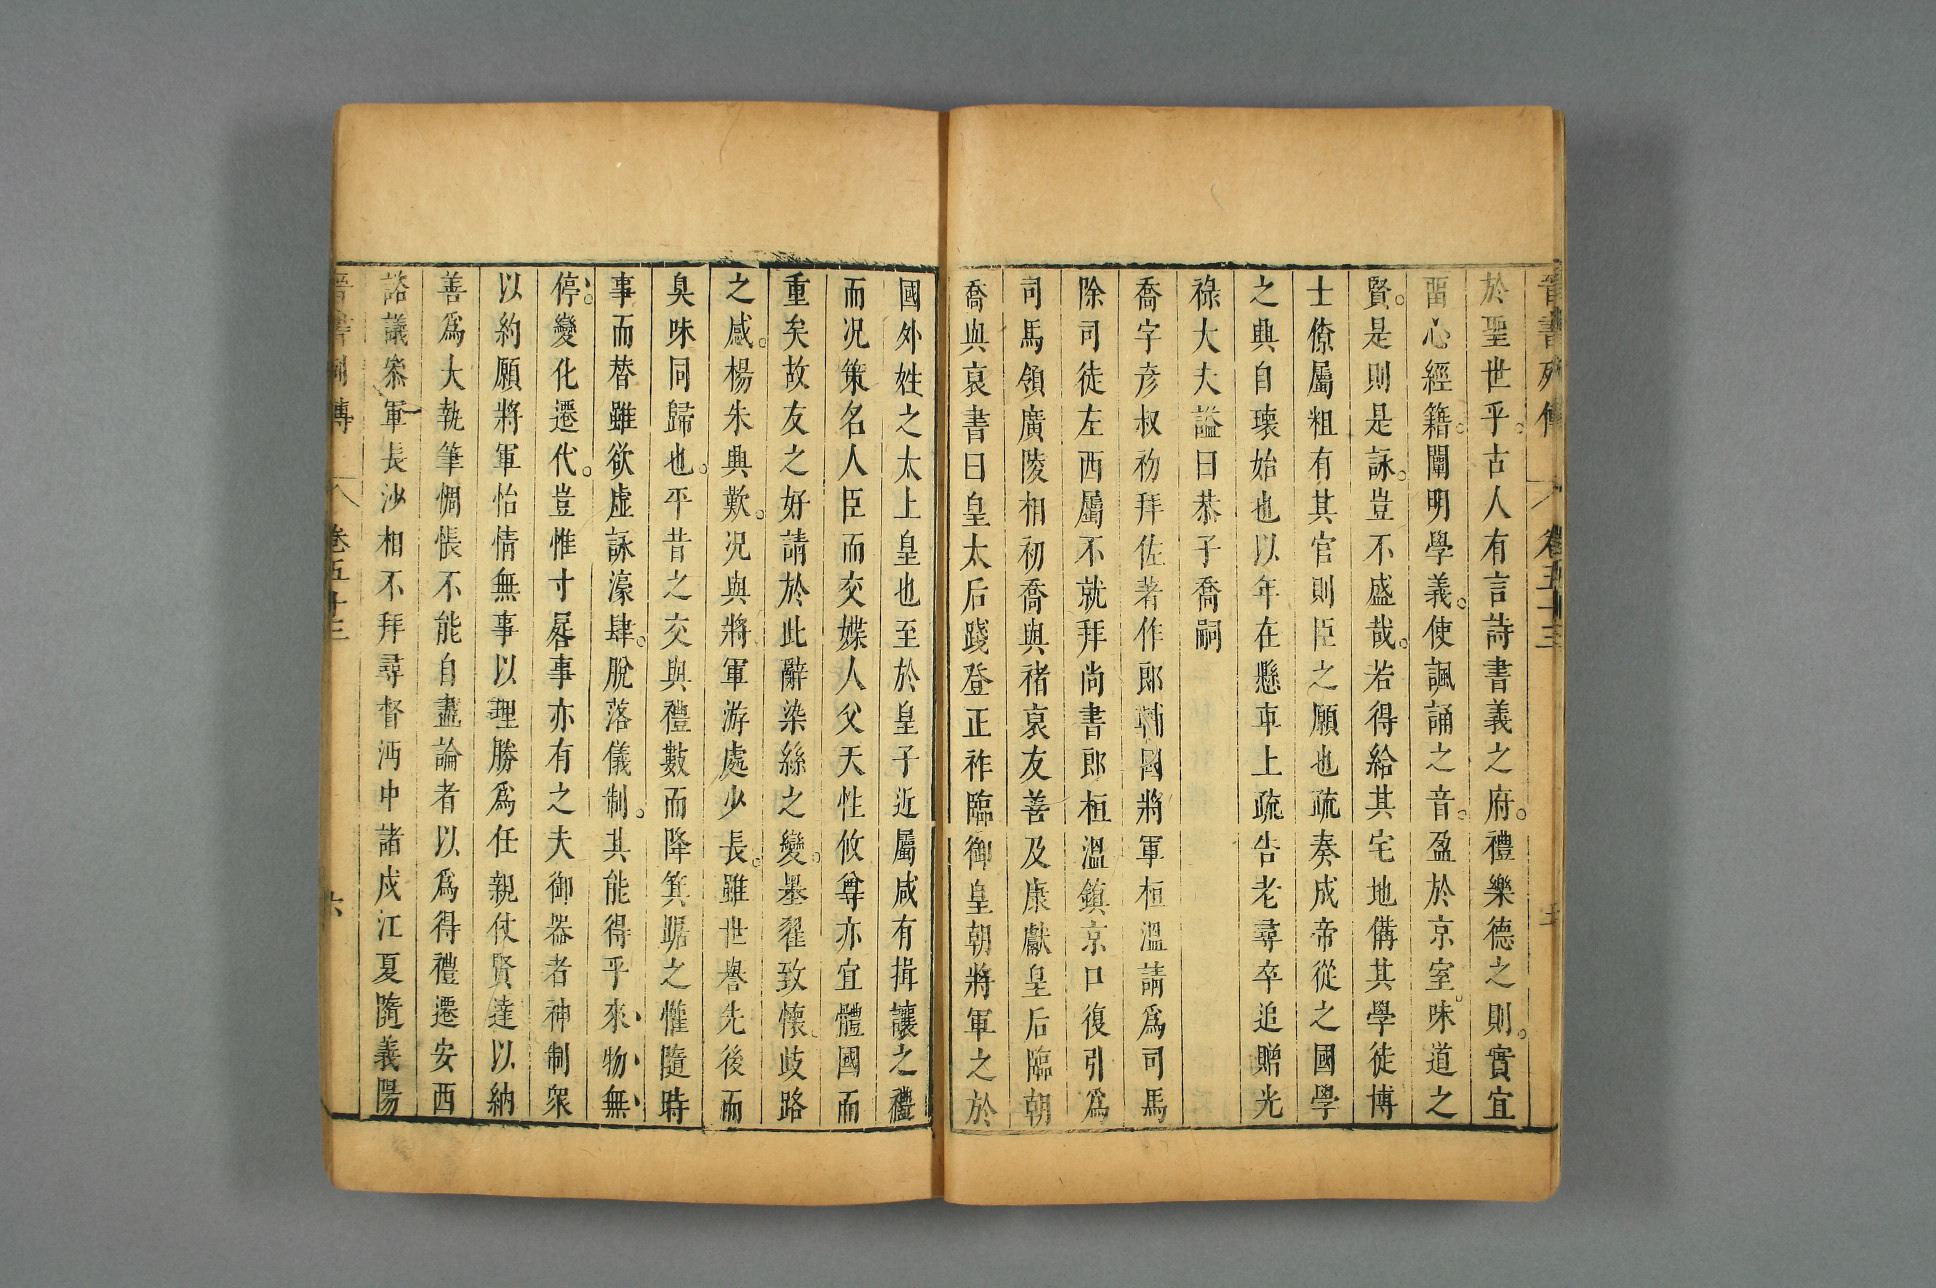 晉書列傳 卷五十三 五
於聖世乎古人有言詩書義之府禮樂德之則實宜
畱心經籍闡明學義使諷誦之音盈於京室味道之
賢是則是詠豈不盛哉若得給其宅地備其學徒博
士僚屬粗有其官則臣之願也疏奏成帝從之國學
之興自瓌始也以年在懸車上疏告老尋卒追贈光
祿大夫謚曰恭子喬嗣
喬字彥叔初拜佐著作郎輔國將軍桓溫請爲司馬
除司徒左西屬不就拜尚書郎桓溫鎭京口復引爲
司馬領廣陵相初喬與褚裒友善及康獻皇后臨朝
喬與裒書曰皇太后踐登正祚臨御皇朝將軍之於
國外姓之太上皇也至於皇子近屬咸有揖讓之禮
而况策名人臣而交媟人父天性攸尊亦宜體國而
重矣故友之好請於此辭染絲之變墨翟致懷歧路
之感楊朱興歎况與將軍游處少長雖世譽先後而
臭味同歸也平昔之交與禮數而降箕踞之懽隨時
事而替雖欲虛詠濠肆脫落儀制其能得乎來物無
停變化遷代豈惟寸晷事亦有之夫御器者神制衆
以約願將軍怡情無事以理勝爲任親仗賢達以納
善爲大執筆惆悵不能自盡論者以爲得禮遷安西
諮議參軍長沙相不拜尋督沔中諸戍江夏隨義陽
晉書列傳 卷五十三 六